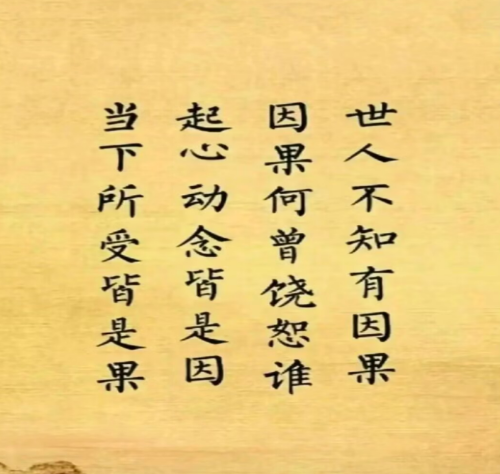 世人不知有因果
因果何曾饶恕谁
起心动念皆是因
当下所受皆是果